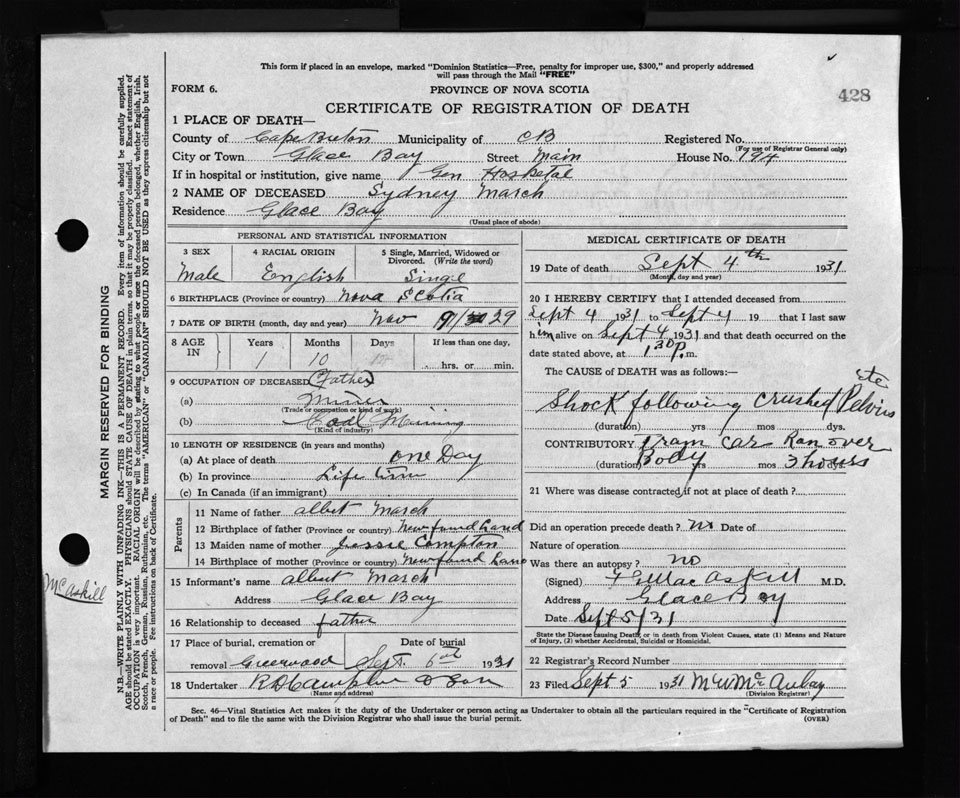 This form if placed in an envelope, marked "Dominion Statistics—Free, penalty for improper use, $300," and properly addressed
will pass through the Mail "FREE"
FORM 6.
PROVINCE OF NOVA SCOTIA
428
CERTIFICATE OF REGISTRATION OF DEATH
1 PLACE OF DEATH—
County of Cape Breton Municipality of CB Registered No.
(For use of Registrar General only)
City or Town Glace Bay Street Main House No. 194
If in hospital or institution, give name Gen Hospetal
2 NAME OF DECEASED Sydney March
Residence Glace Bay
(Usual place of abode)
PERSONAL AND STATISTICAL INFORMATION
3 SEX 4 RACIAL ORIGIN 5 Single, Married, Widowed or
Divorced. (Write the word)
Male English Singe
6 BIRTHPLACE (Province or country) Nova Scotia
7 DATE OF BIRTH (month, day and year) Nov 9/ 29
8 AGE IN Years Months Days If less than one day.
1 10 hrs. or min.
9 OCCUPATION OF DECEASED (Father)
(a) Miner
(Trade or occupation or kind of work)
(b) Coal Mining
(Kind of industry)
10 LENGTH OF RESIDENCE (in years and months)
(a) At place of death one Day
(b) In province Life time
(c) In Canada (if an immigrant)
Parents
11 Name of father Albert March
12 Birthplace of father (Province or country) Newfoundland
13 Maiden name of mother Jessie Compton
14 Birthplace of mother (Province or country) Newfoundland
15 Informant's name Albert March
Address Glace Bay
16 Relationship to deceased father
17 Place of burial, cremation or Date of burial
removal Greenwood Sept. 6th 1931
18 Undertaker & Son
(Name and address)
MEDICAL CERTIFICATE OF DEATH
19 Date of death Sept 4th 1931
(Month, day and year)
20 I HEREBY CERTIFY that I attended deceased from
Sept 4 1931 to Sept 4 19 that I last saw
him alive on Sept 4 1931 and that death occurred on the
date stated above, at 1.30 p.m.
The CAUSE of DEATH was as follows:—
Shock following crushed Pelvis etc
(duration) yrs mos dys.
CONTRIBUTORY Tram car Ran over
Body
(duration) yrs mos 3 hours dys.
21 Where was disease contracted if not at place of death?
Did an operation precede death? No Date of
Nature of operation
Was there an autopsy? no
(Signed) MacAskill M.D.
Address Glace Bay
Date Sept 5/31
State the Disease causing Death, or in death from Violent Causes, state (1) Means and Nature
of Injury, (2) whether Accidental, Suicidal or Homicidal.
22 Registrar's Record Number
23 Filed Sept 5 1931
(Division Registrar)
Sec. 46—Vital Statistics Act makes it the duty of the Undertaker or person acting as Undertaker to obtain all the particulars required in the "Certificate of Registration
of Death" and to file the same with the Division Registrar who shall issue the burial permit.
(OVER)
MARGIN RESERVED FOR BINDING
N.B.—WRITE PLAINLY WITH UNFADING INK—THIS IS A PERMANENT RECORD. Every item of information should be carefully supplied.
AGE should be stated EXACTLY. PHYSICIANS should STATE CAUSE OF DEATH in plain terms, so that it may be properly classified. Exact statement of
OCCUPATION is very important. RACIAL ORIGIN will be described by stating to what people or race the deceased person belonged, whether English, Irish,
Scotch, French, German, Russian, Ruthenian, etc. The terms "AMERICAN" or "CANADIAN" SHOULD NOT BE USED as they express citizenship but not
a race or people. Fee instructions on back of Certificate.
McAskill